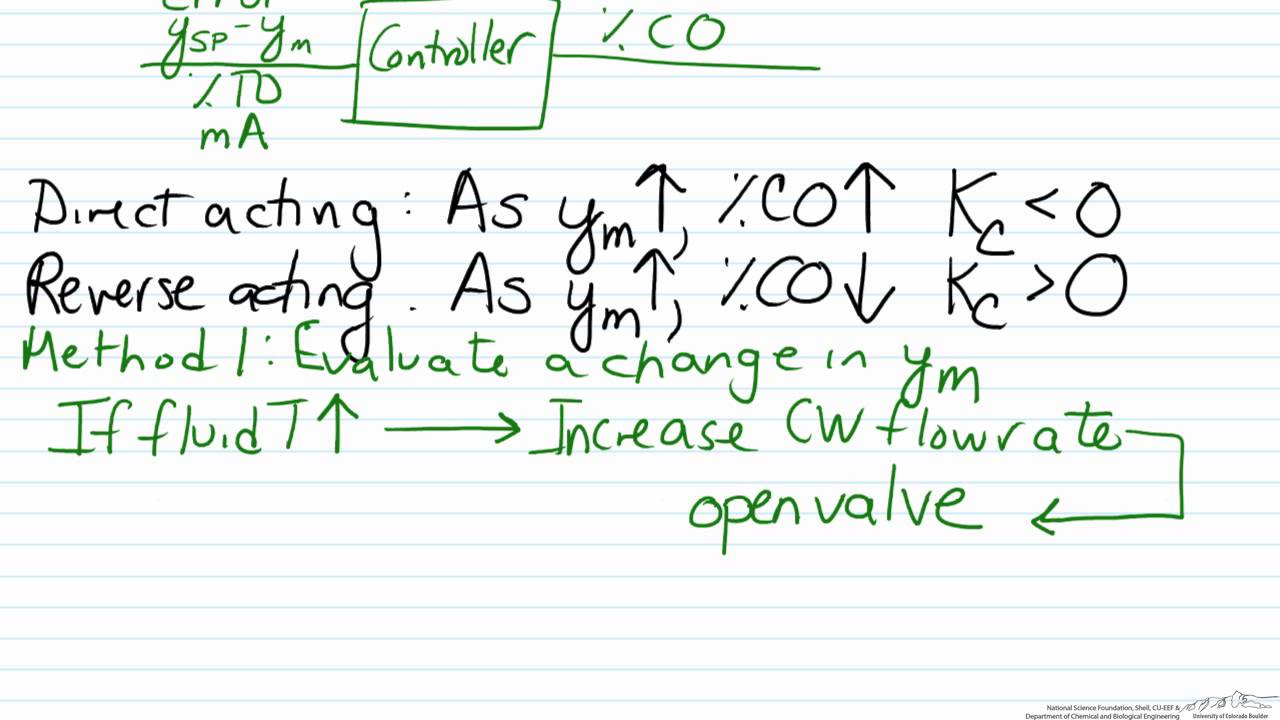 Error
ySP - ym
Controller
% CO
% TO
mA
Direct acting: As ym↑, %CO↑ Kc < 0
Reverse acting. As ym↑, %CO↓ Kc > 0
Method 1: Evaluate a change in ym
If fluid T↑ → Increase CW flowrate
open valve ←
National Science Foundation, Shell, CU-EEF &
Department of Chemical and Biological Engineering
University of Colorado Boulder